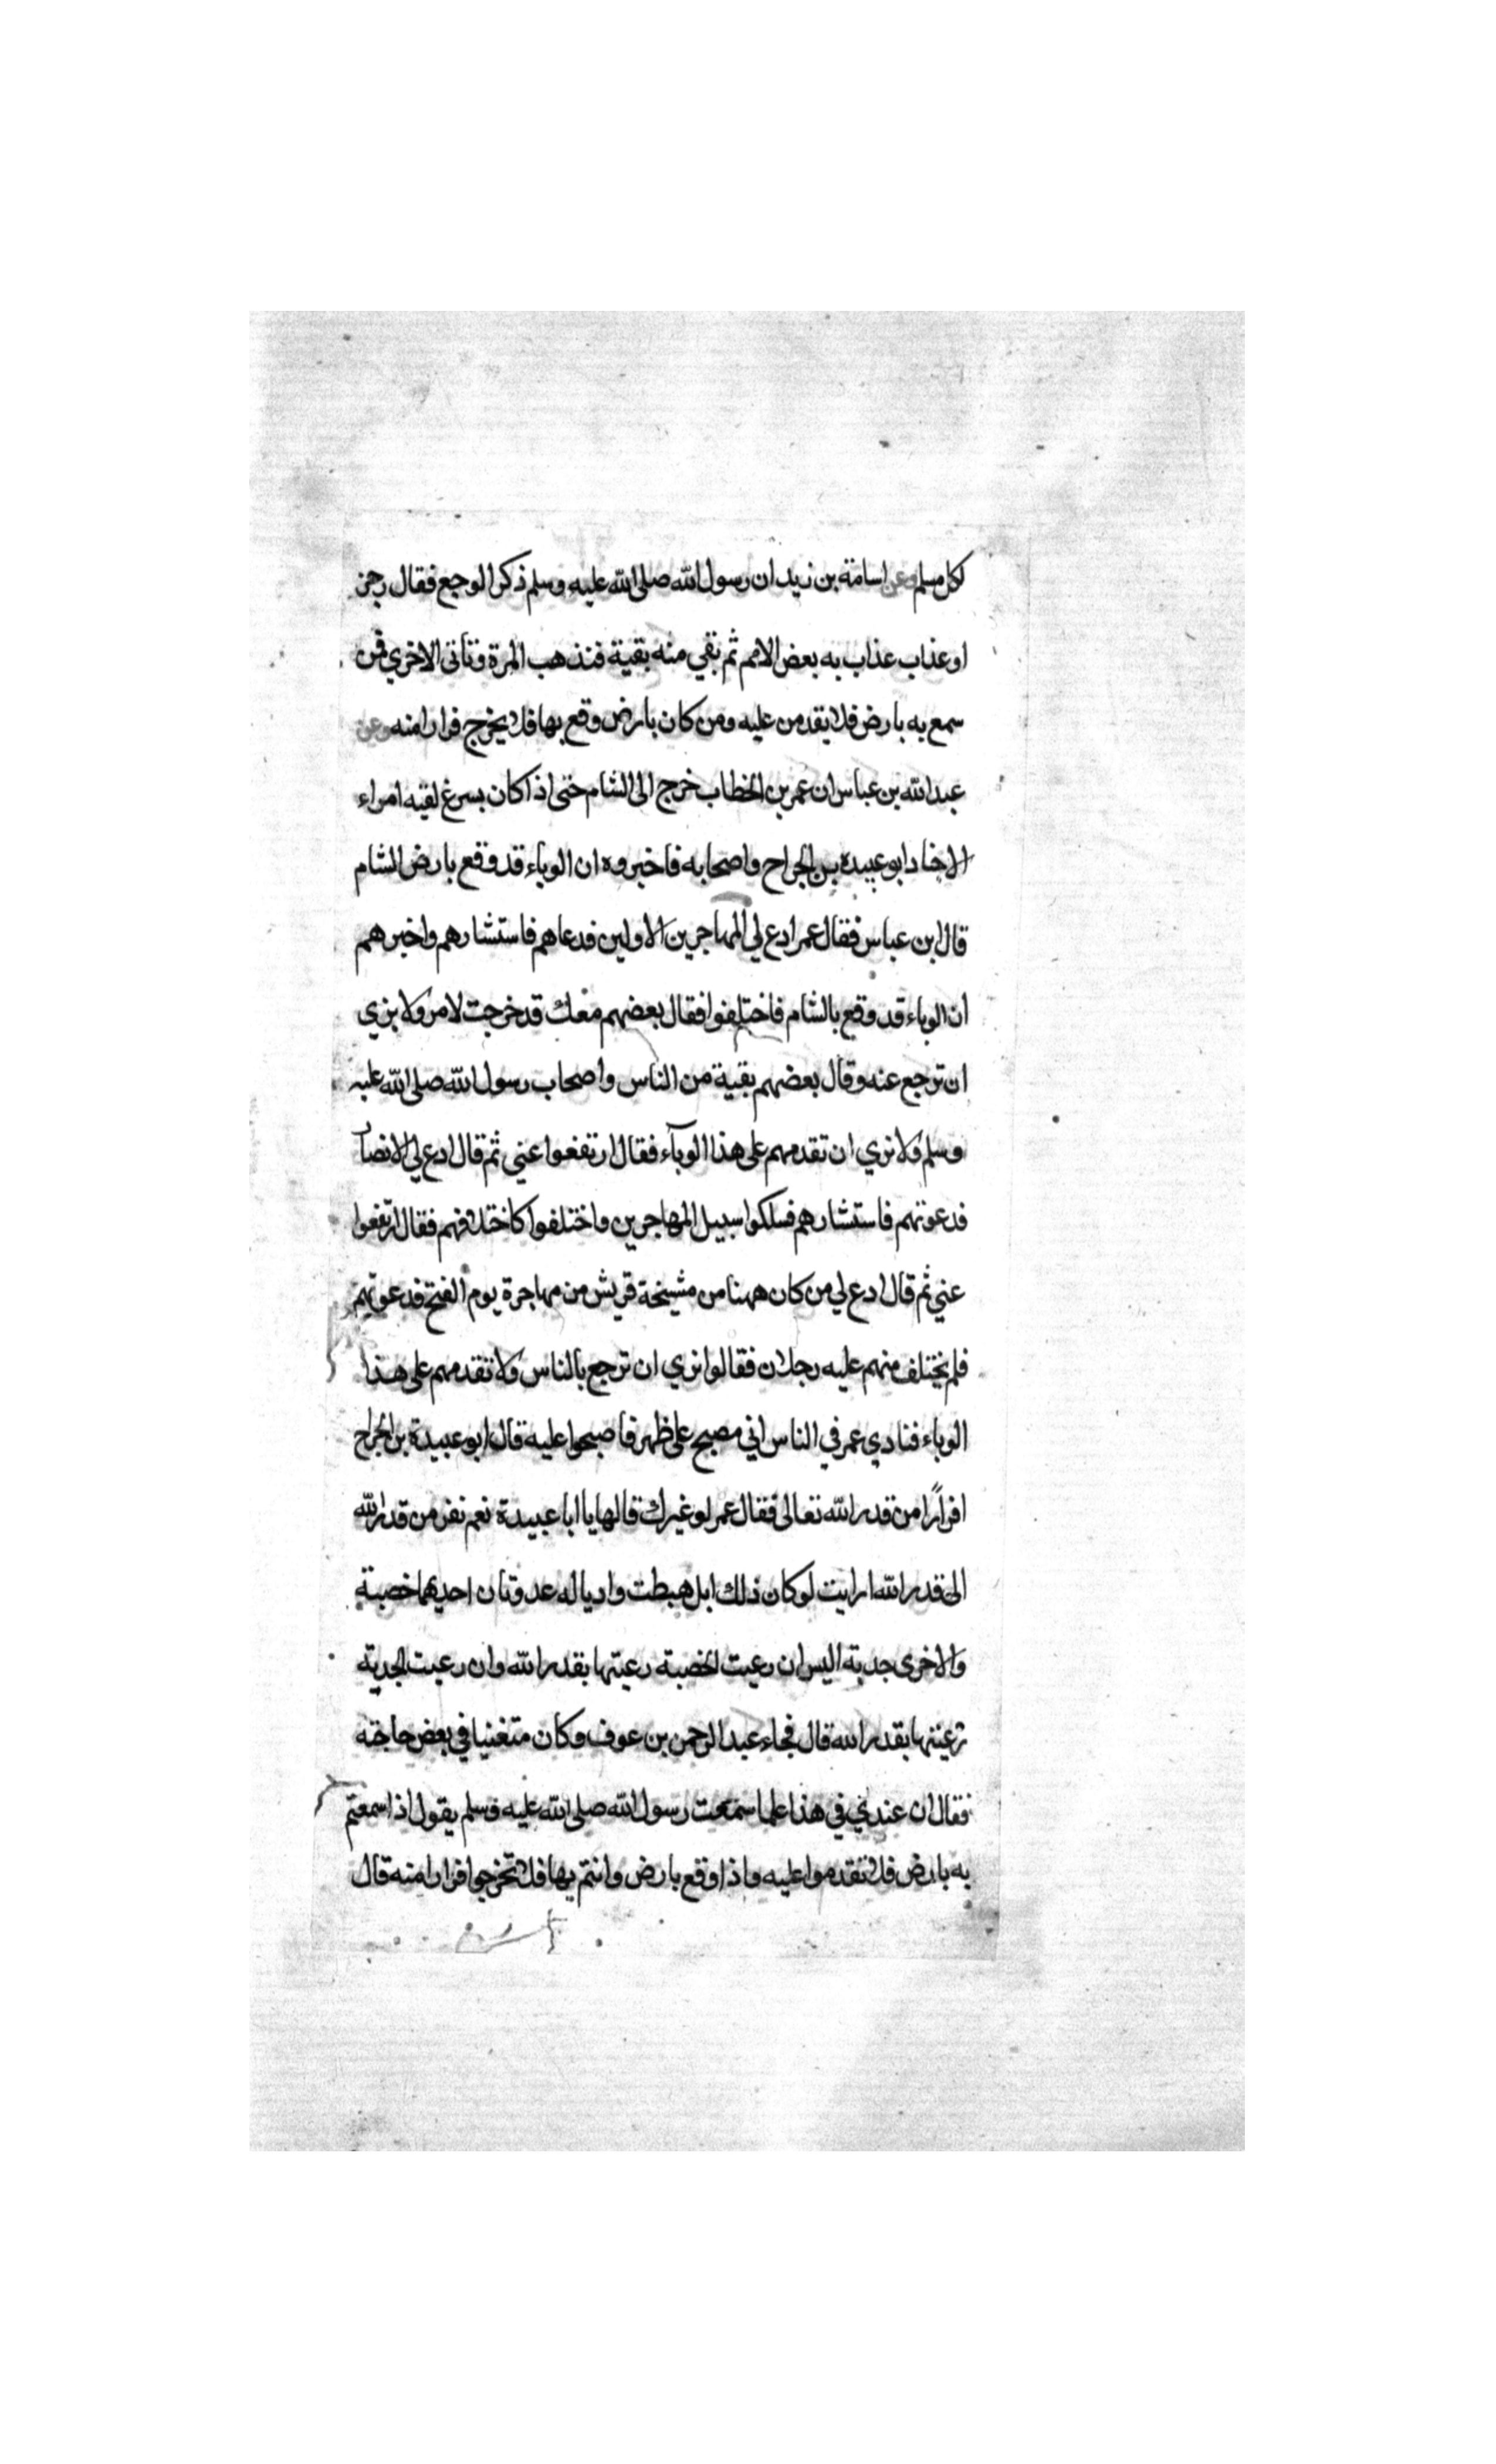 لكل مسلم وعن اسامة بن زيد ان رسول الله صلى الله عليه وسلم ذكر الوجع فقال رجز
او عذاب عذاب به بعض الامم ثم بقي منه بقية فتذهب المرة وتاتى الاخري فمن
سمع به بارض فلا يقدمن عليه ومن كان بارض وقع بها فلا يخرج فرارا منه وعن
عبد الله بن عباس ان عمر بن الخطاب خرج الى الشام حتى اذا كان بسرغ لقيه امراء
الاخناد ابو عبيدة بن الجراح واصحابه فاخبروه ان الوباء قد وقع بارض الشام
قال ابن عباس فقال عمر ادع لي المهاجرين الاولين فدعاهم فاستشارهم واخبرهم
ان الوباء قد وقع بالشام فاختلفوا فقال بعضهم معك قد خرجت لامر ولا نري
ان ترجع عنه وقال بعضهم بقية من الناس واصحاب رسول الله صلى الله عليه
وسلم ولا نري ان تقدمهم على هذا الوبآء فقال ارتفعوا عني ثم قال ادع لي الانصار
فدعوتهم فاستشارهم فسلكوا سبيل المهاجرين واختلفوا كاختلافهم فقال ارتفعوا
عني ثم قال ادع لي من كان ههنا من مشيخة قريش من مهاجرة يوم الفتح فدعوتهم
فلم يختلف منهم عليه رجلان فقالوا نري ان ترجع بالناس ولا تقدمهم على هذا
الوباء فنادي عمر في الناس اني مصبح على ظهر فاصبحوا عليه قال ابو عبيدة بن الجراح
افرارًا من قدر الله تعالى فقال عمر لو غيرك قالها يا ابا عبيدة نعم نفر من قدر الله
الى قدر الله ارايت لو كان ذلك ابل هبطت واديا له عدوتان احديهما خصبة
والاخرى جدبة اليس ان رعيت الخصبة رعيتها بقدر الله وان رعيت الجدبة
رعيتها بقدر الله قال فجاء عبد الرحمن بن عوف وكان متغنيا في بعض حاجته
فقال ان عندي في هذا علما سمعت رسول الله صلى الله عليه وسلم يقول اذا سمعتم
به بارض فلا تقدموا عليه واذا وقع بارض وانتم بها فلا تخرجوا فرارا منه قال